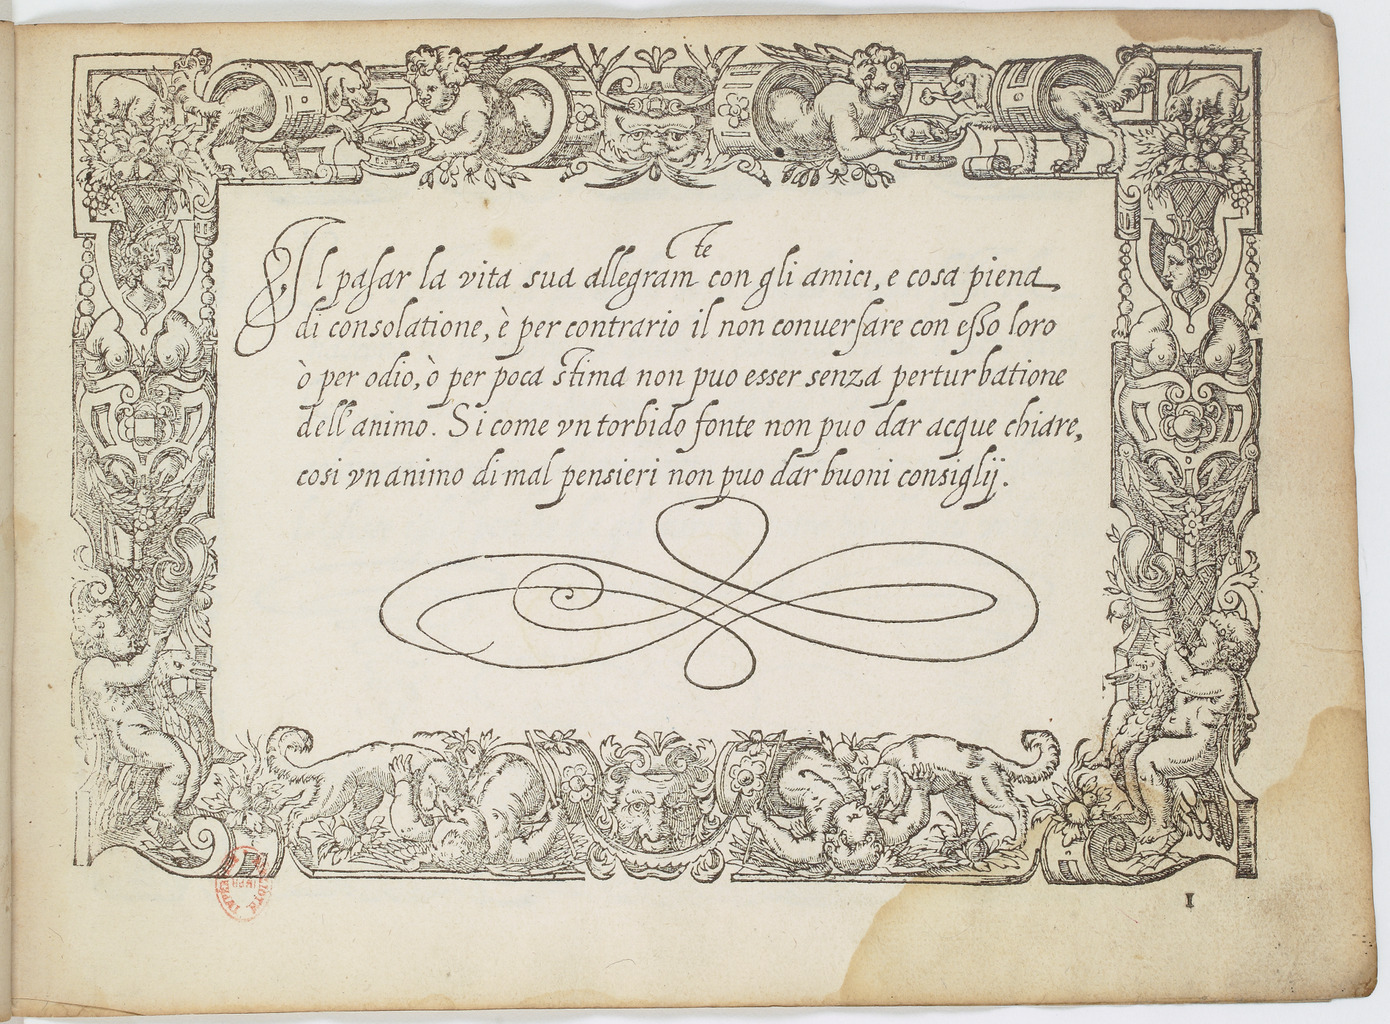 Il pasar la vita sua allegram^te con gli amici, e cosa piena
di consolatione, è per contrario il non conuersare con esso loro
ò per odio, ò per poca stima non puo esser senza perturbatione
dell'animo. Si come vn torbido fonte non puo dar acque chiare,
cosi vn animo di mal pensieri non puo dar buoni consiglij.
I